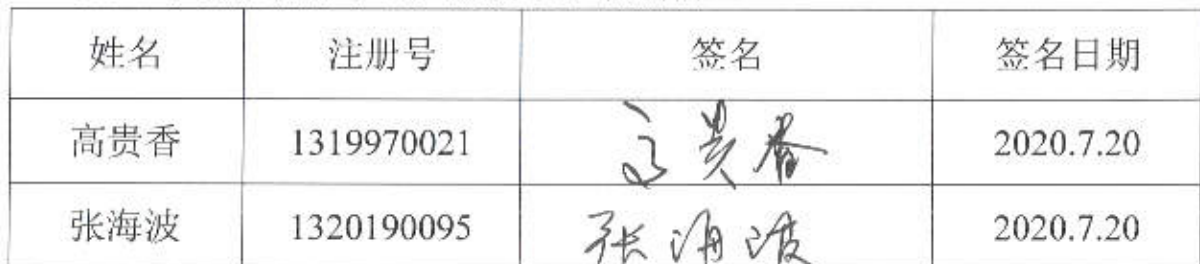 姓名 注册号 签名 签名日期
高贵香 1319970021 高贵香 2020.7.20
张海波 1320190095 张海波 2020.7.20